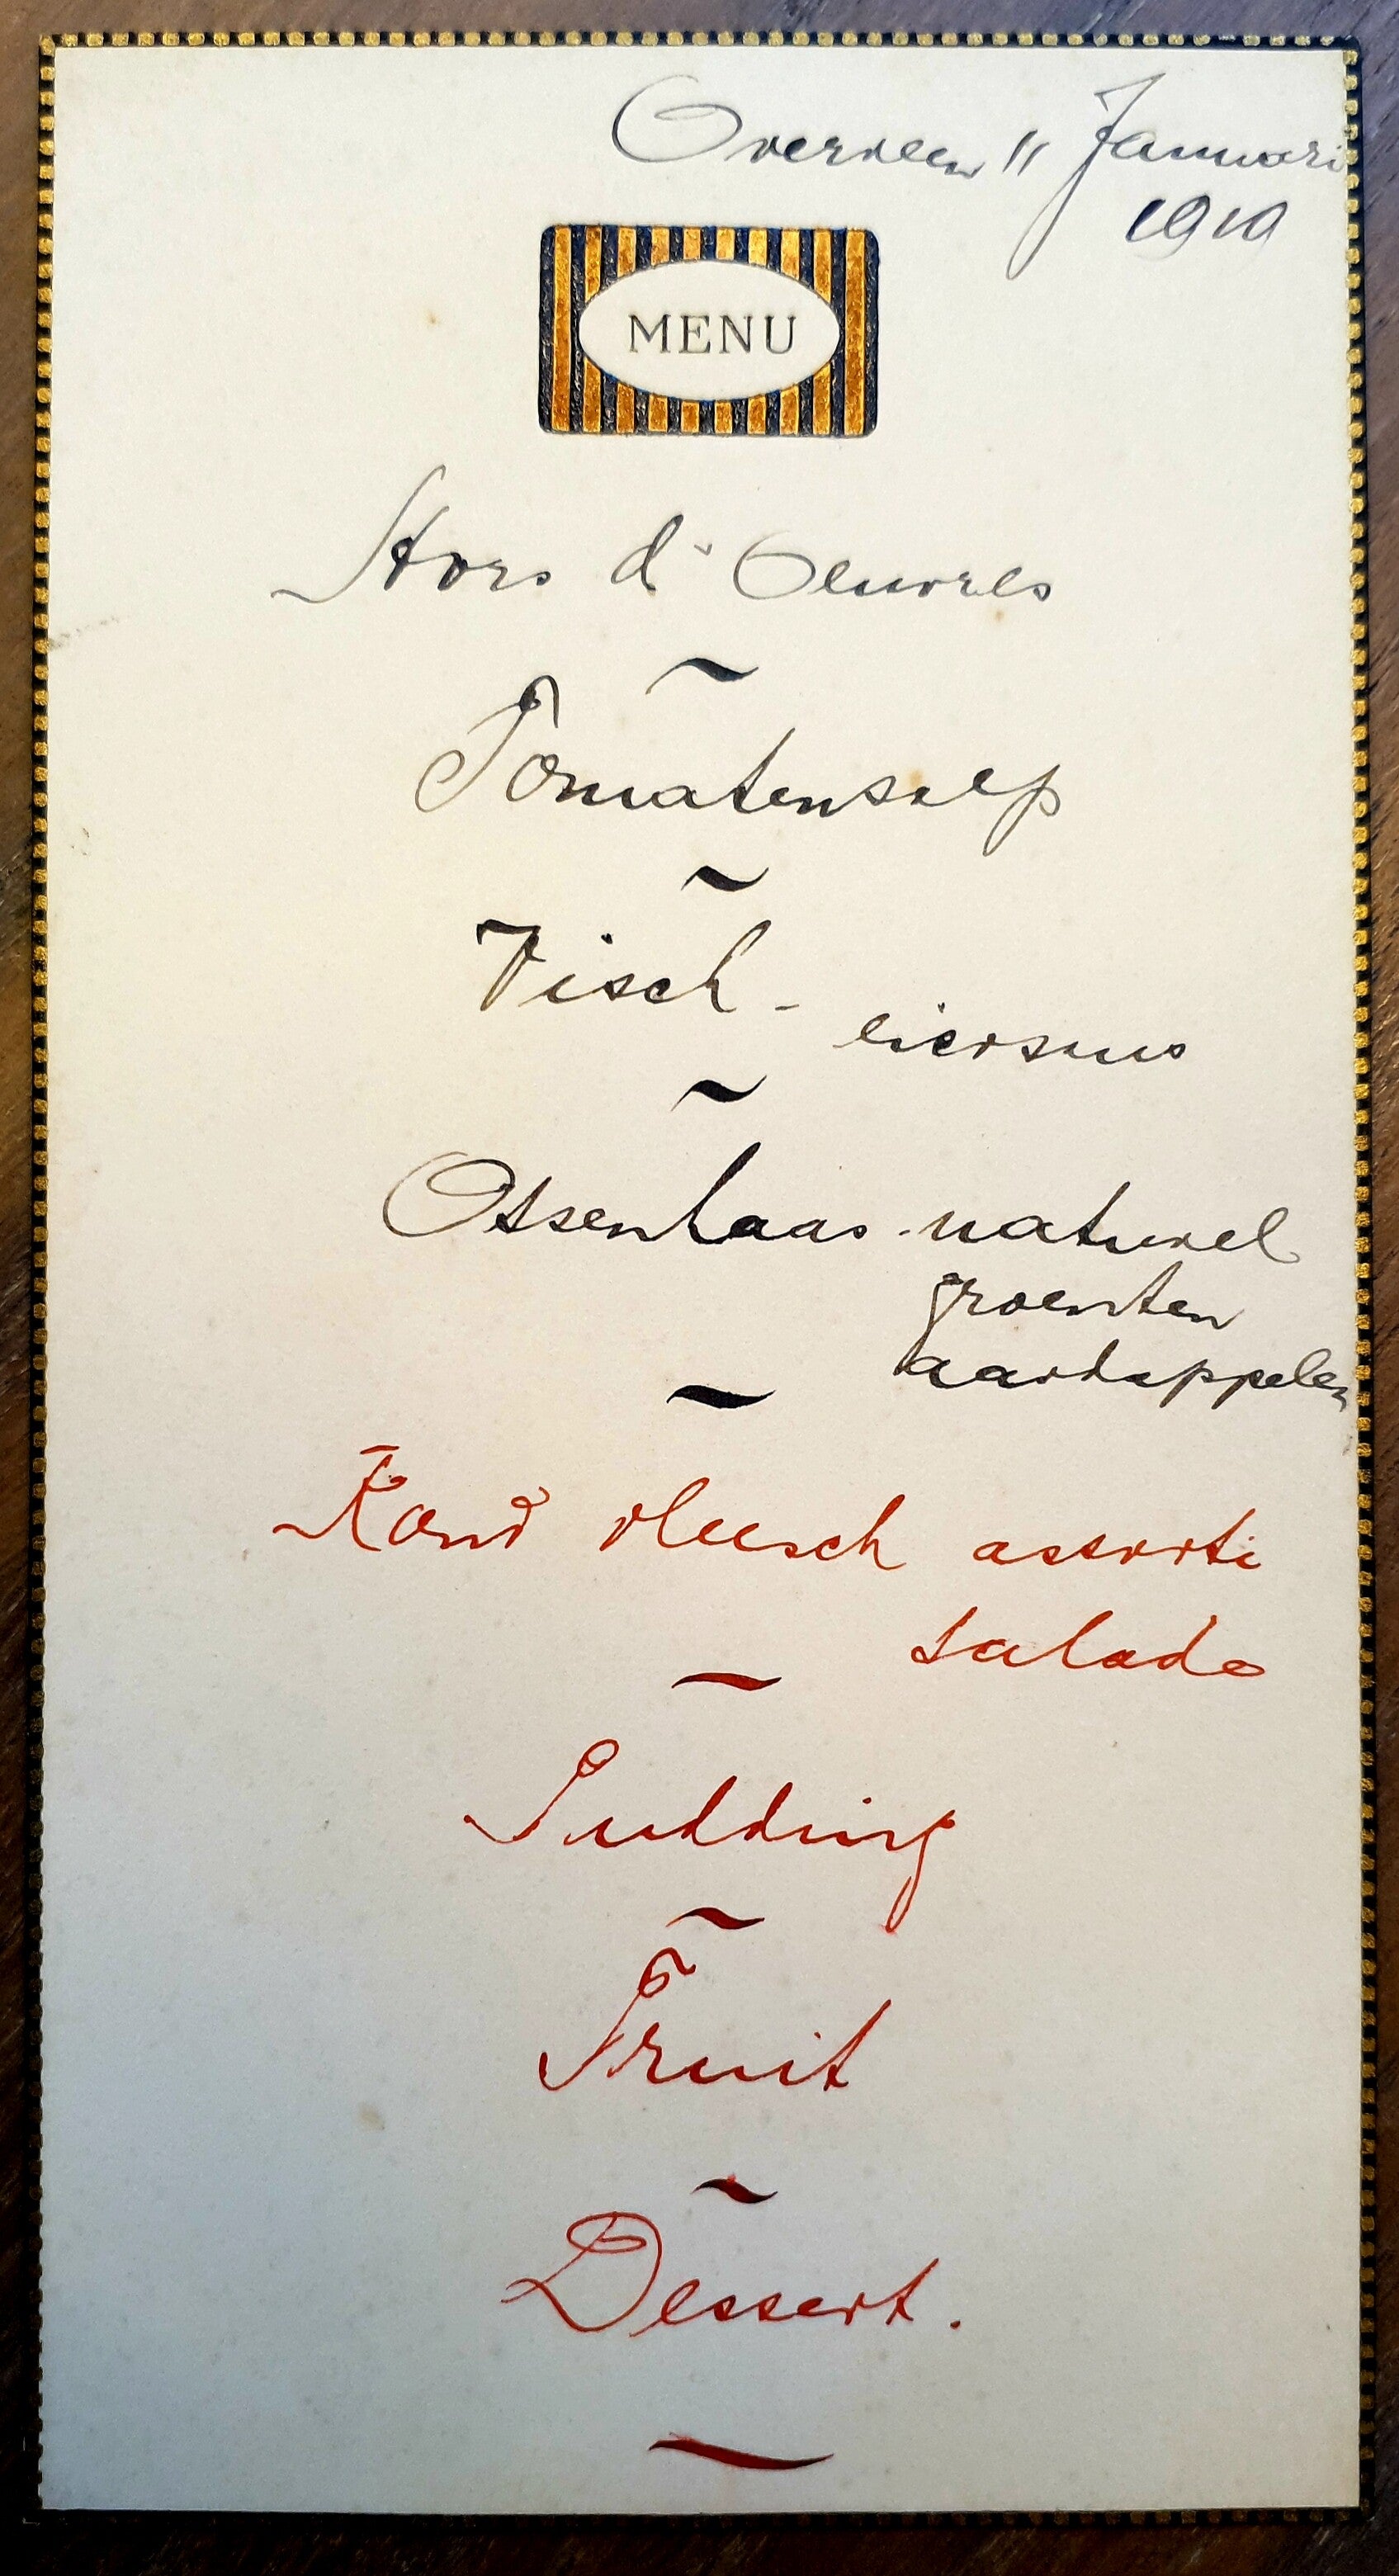 Overveen 11 Januari
1919
MENU
Hors d'Oeuvres
Tomatensoep
Visch - eiersaus
Ossenhaas naturel
groenten
aardappelen
Koud vleesch assorti
salade
Pudding
Fruit
Dessert.